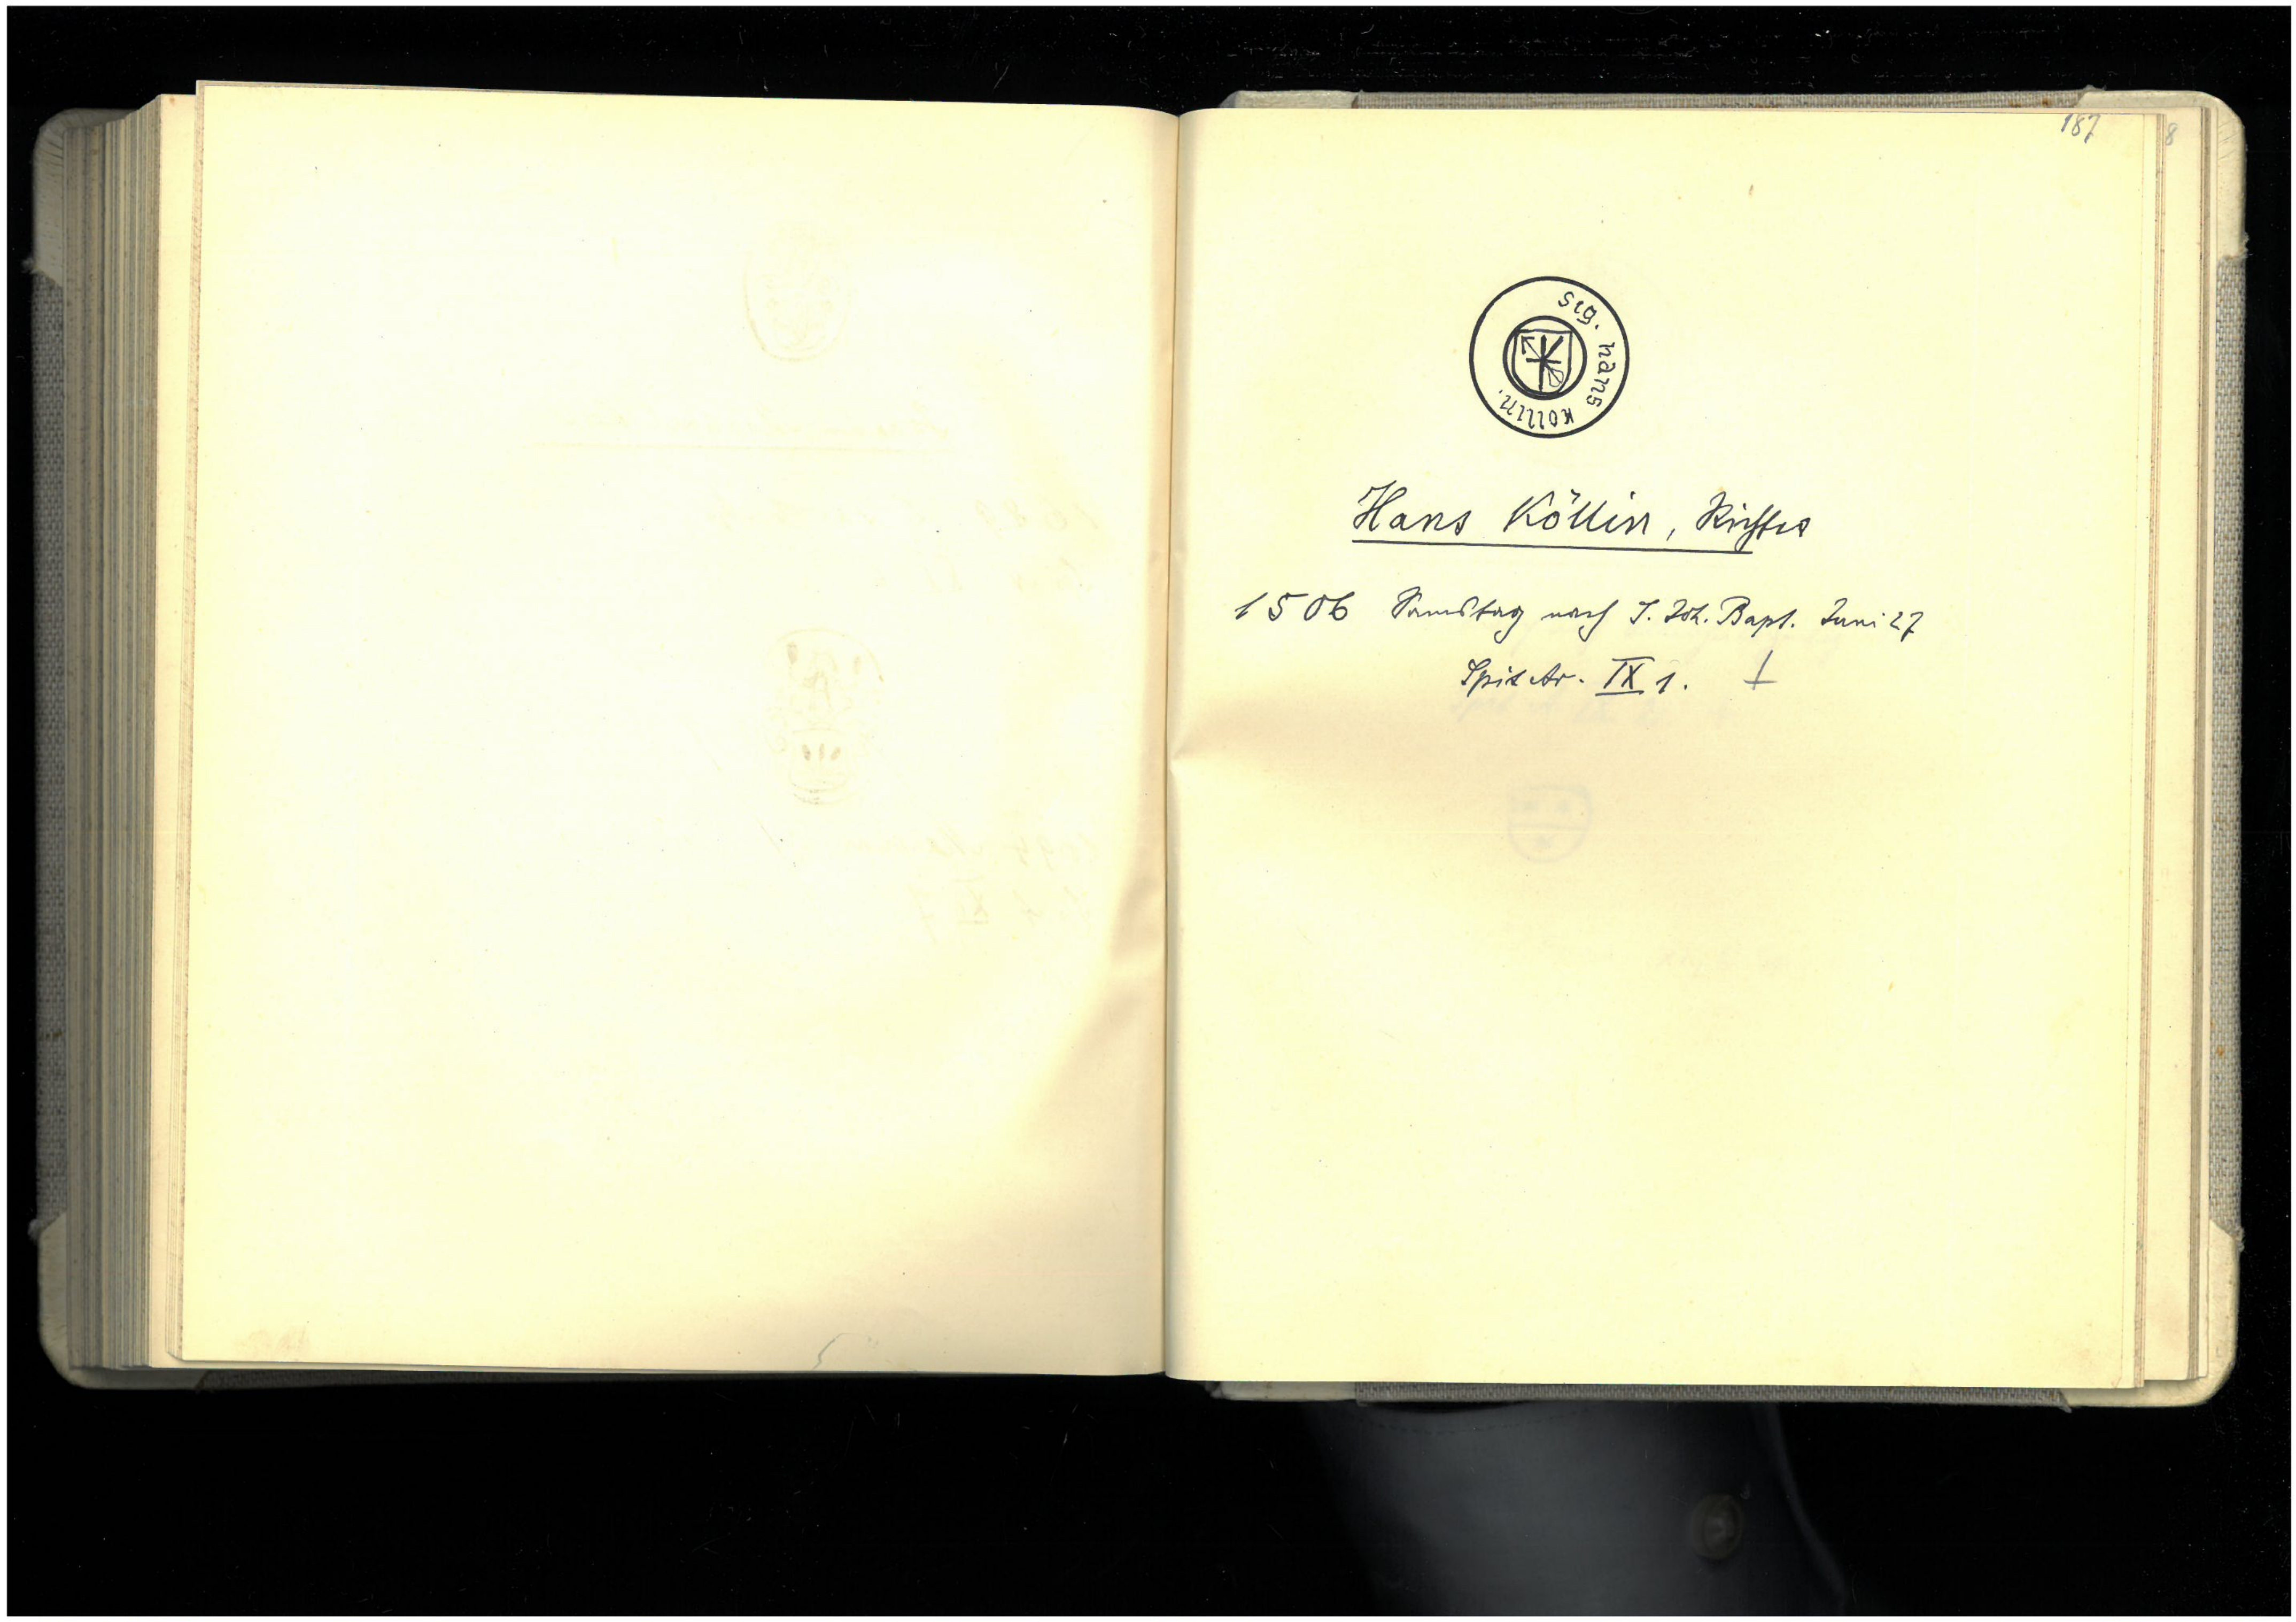 187
8
sig. hans kollin.
Hans Köllin, Richter
1506 Samstag nach S. Joh. Bapt. Juni 27
Spit Ar. IX 1.